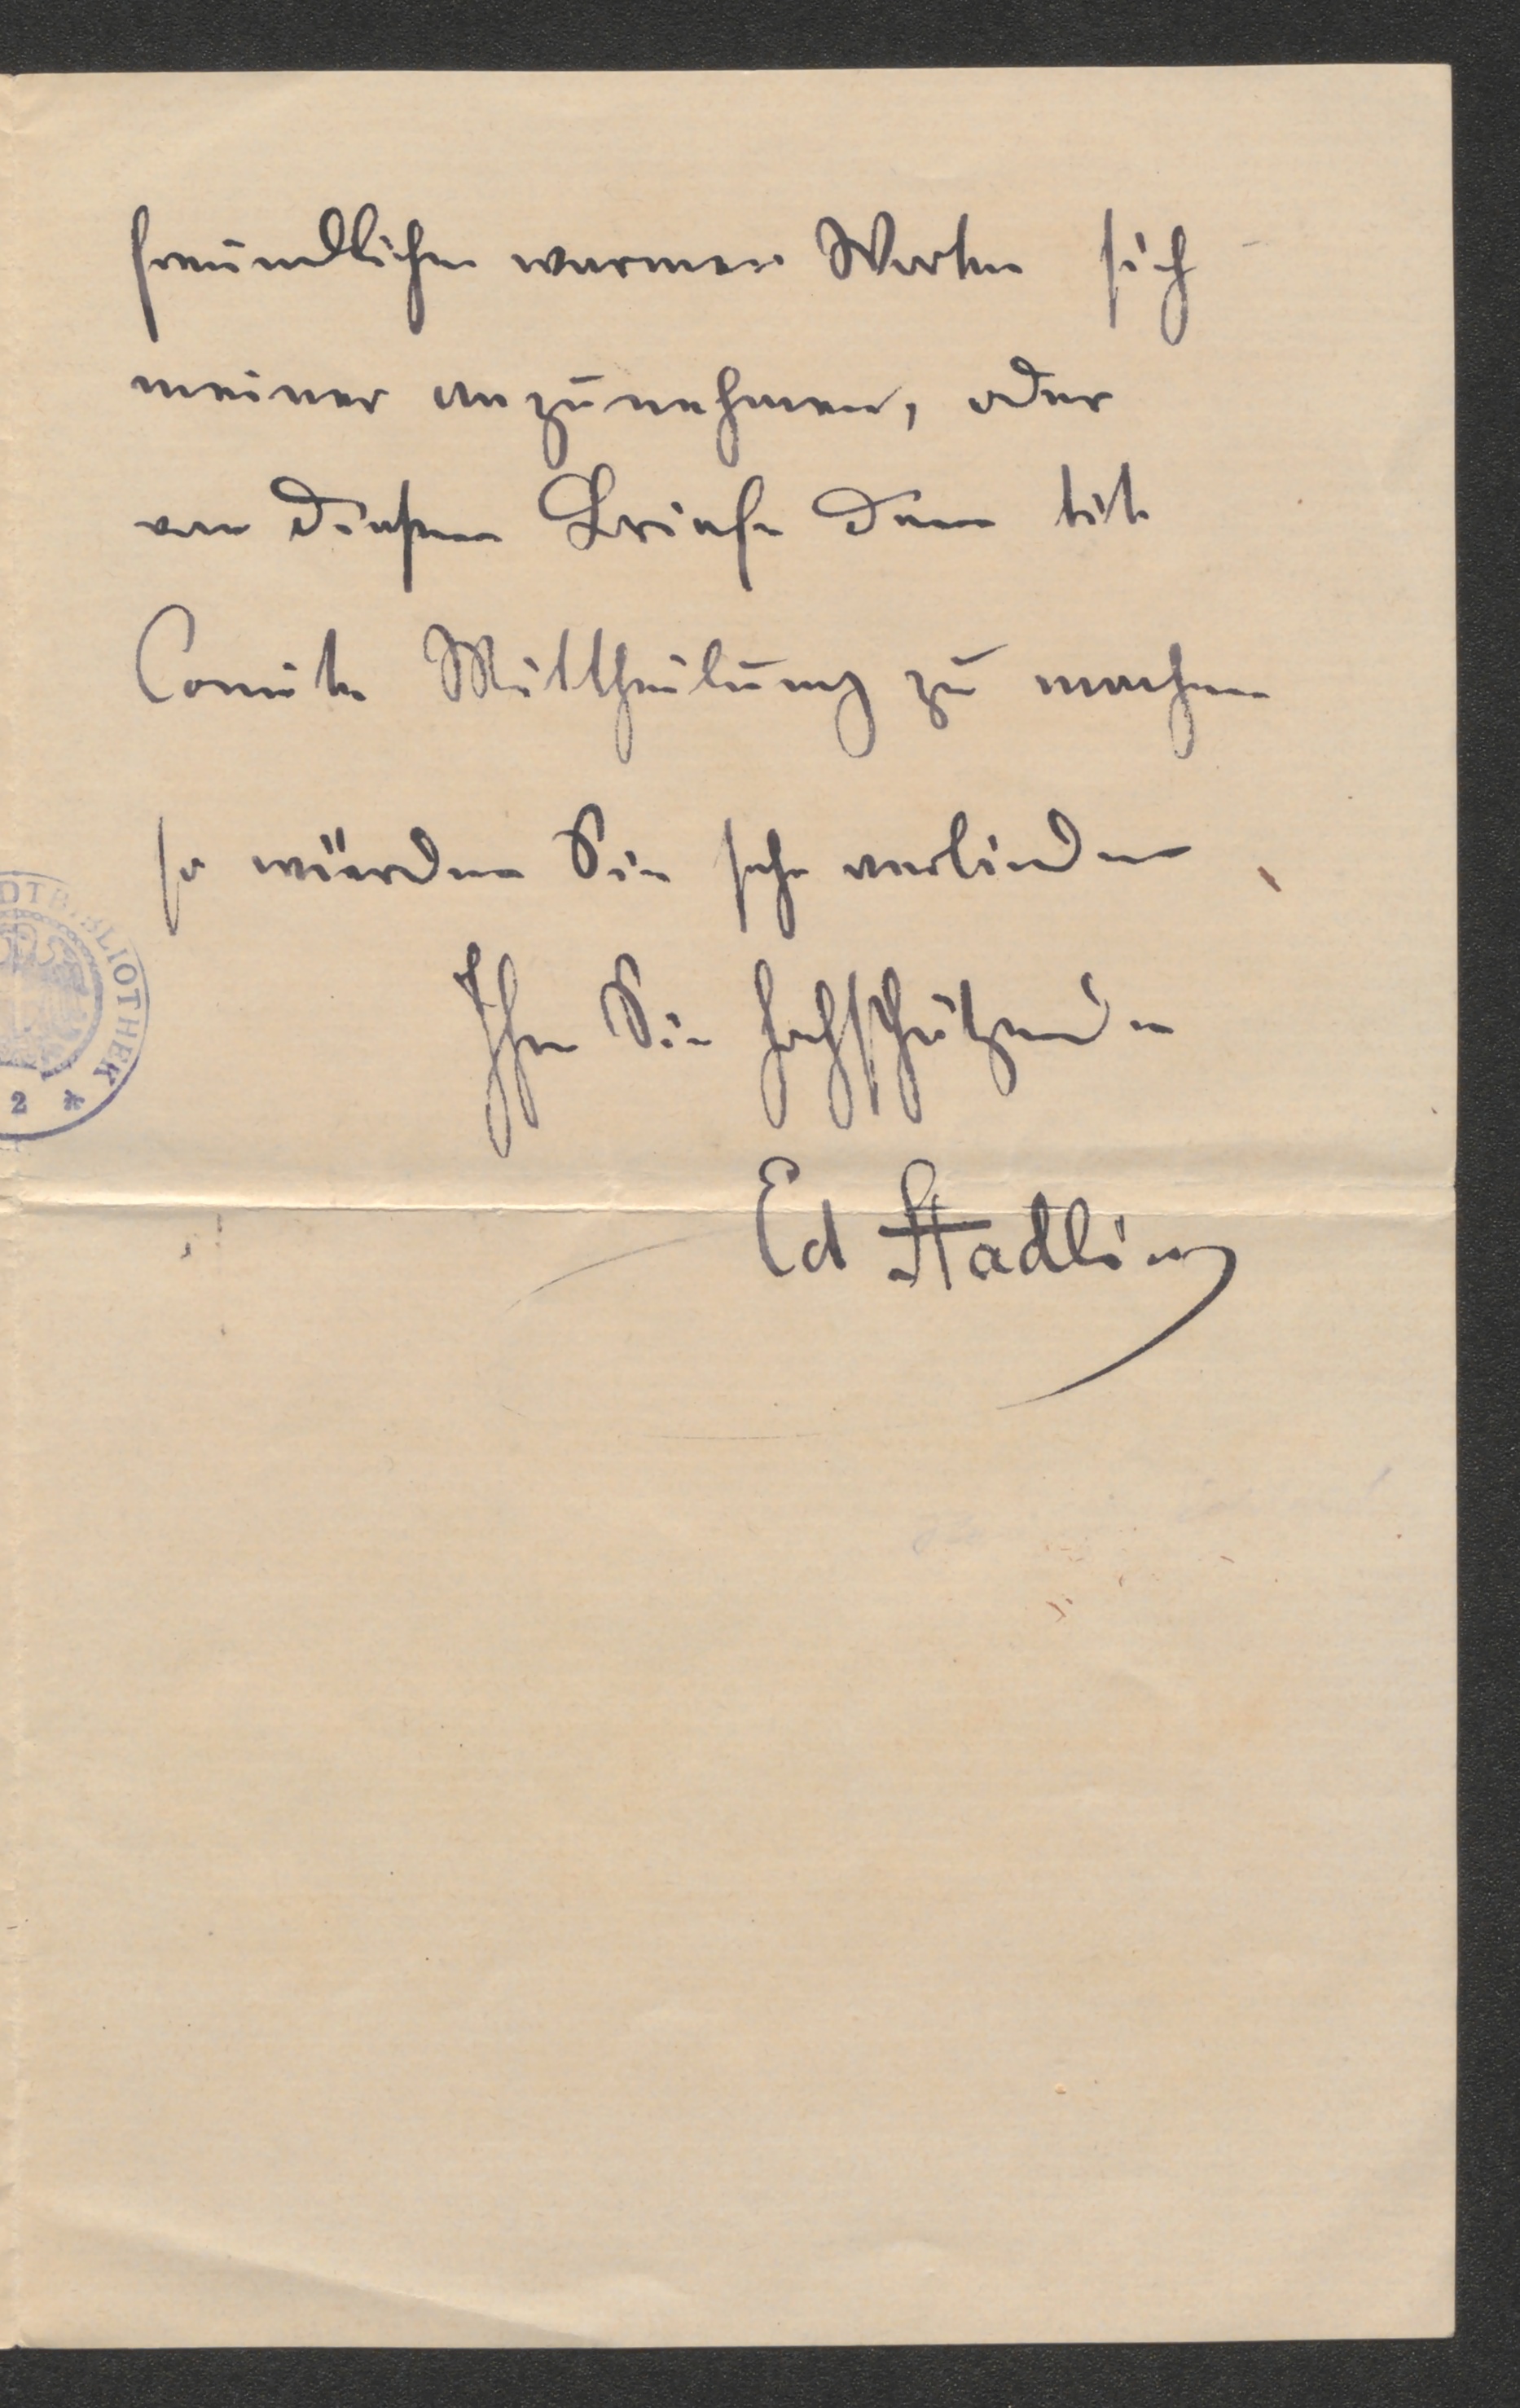 freundlichen warmen Worten sich
meiner anzunehmen, oder
von diesem Briefe dem tit
Comite Mittheilung zu machen
so würden Sie sehr verbinden
Ihren Sie hochschätzenden
Ed Stadlin
DTBIBLIOTHEK
2 *